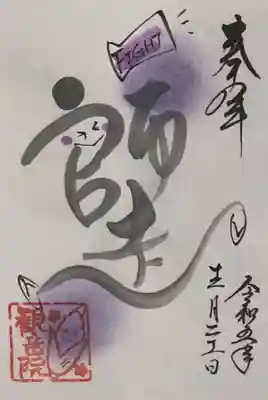 奉拝
FIGHT
師走
令和五年
十二月二五日
観音院